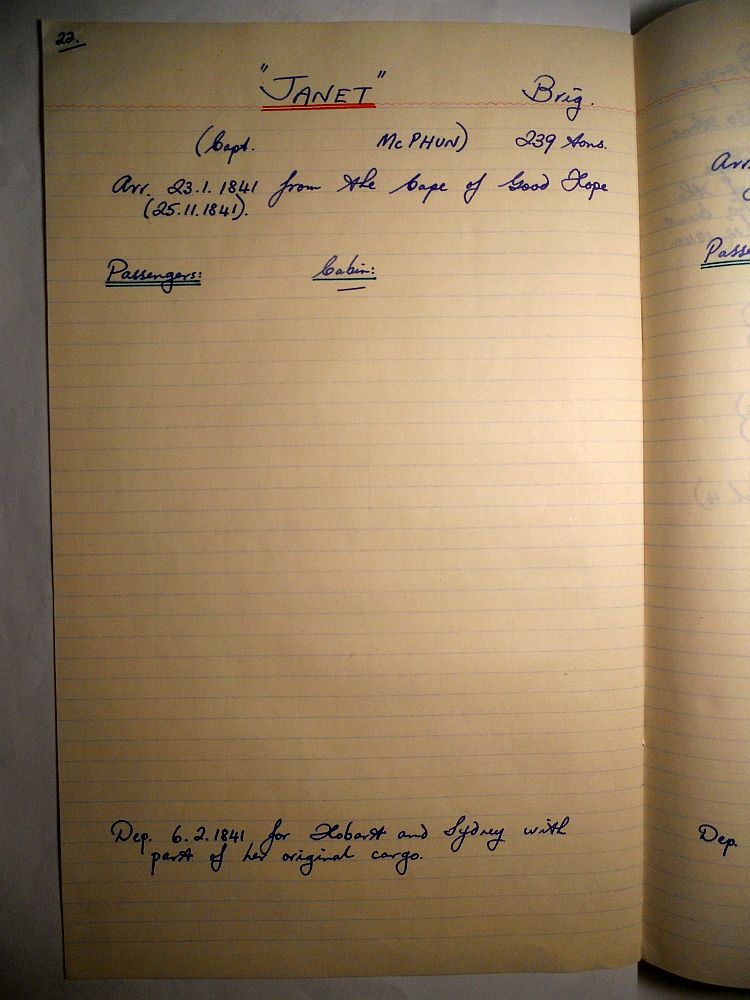 22.
"JANET" Brig.
(Capt. McPHUN) 239 tons.
Arr. 23.1.1841 from the Cape of Good Hope
(25.11.1841).
Passengers: Cabin:
Dep. 6.2.1841 for Hobart and Sydney with
part of her original cargo.
Arr.
Passe
Dep.